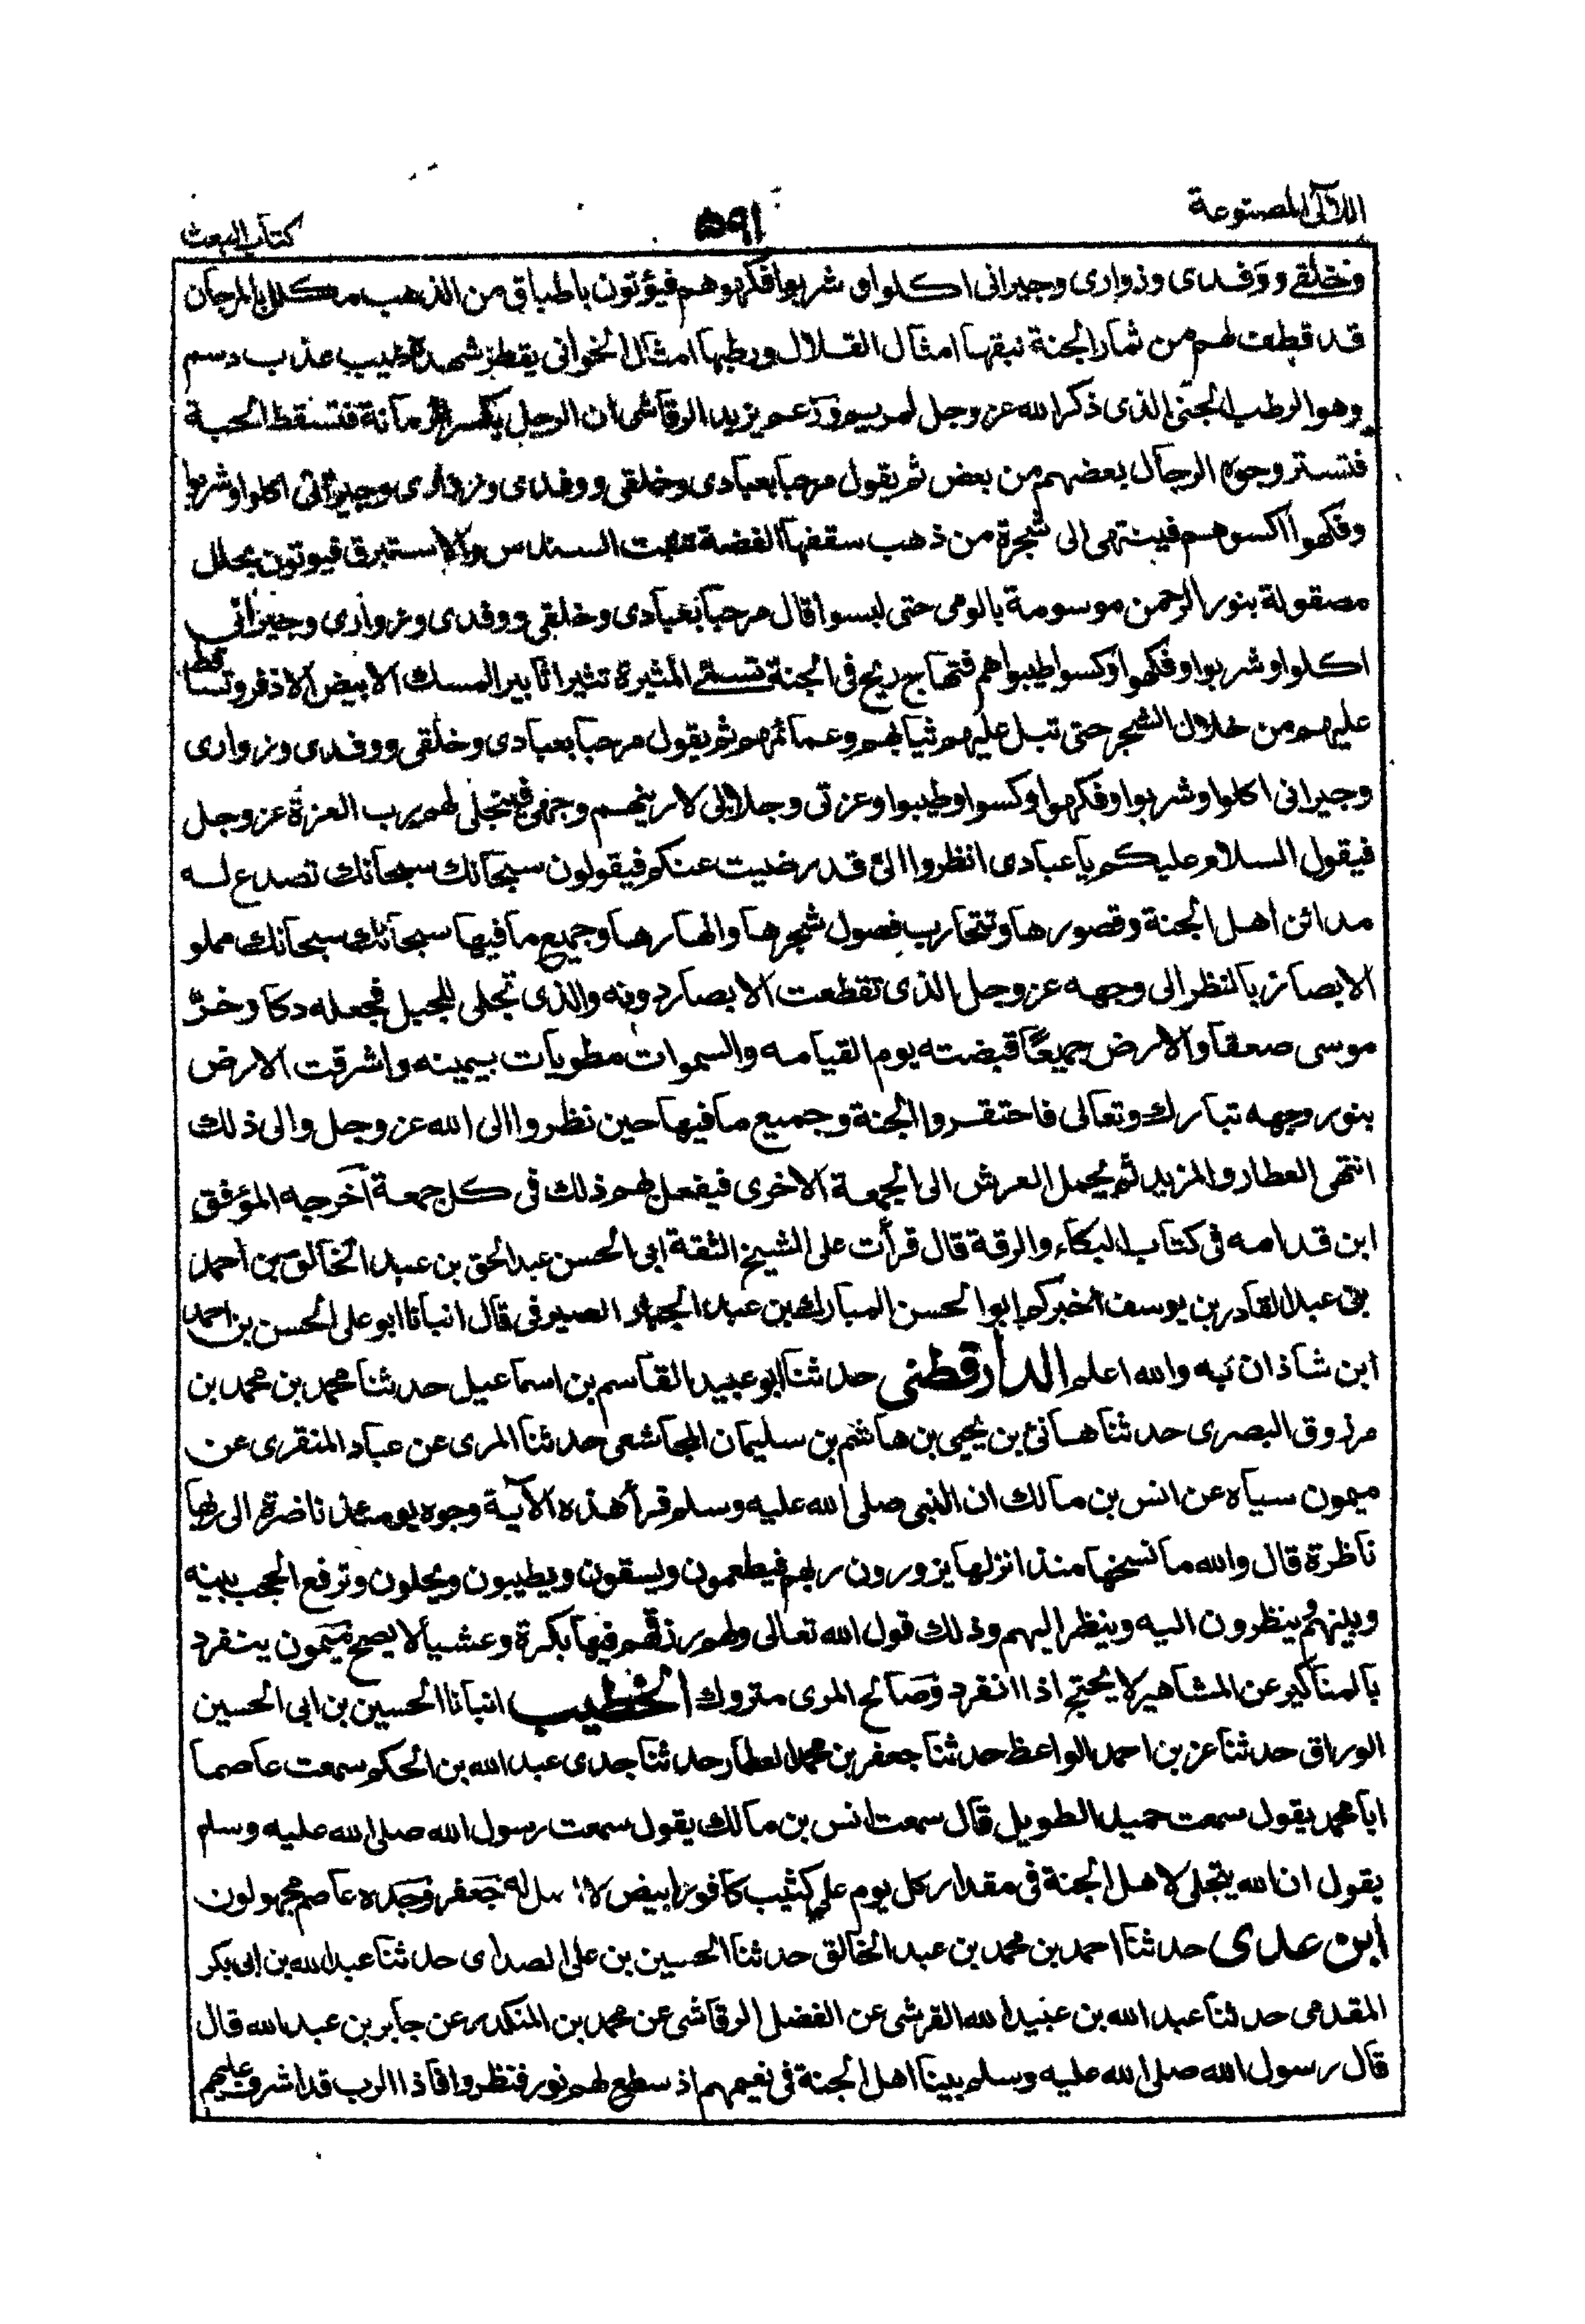 اللآلى المصنوعة
۵۹۱
كتاب البعث
وخلقي ووفدى وزوارى وجيرانى اكلوا و شربوا فكهوهم فيؤتون باطباق من الذهب مكللة بالمرجان
قد قطعت لهم من ثمار الجنة نبقها امثال القلال ورطبها امثال الخوانى يقطر شهدة طيب عذب دسم
وهو الرطب الجنى الذى ذكر الله عز وجل لمريم وزعم يزيد الرقاشى ان الرجل يكسر الرمانة فتسقط الحبة
فتستر وجوه الرجال بعضهم من بعض ثم يقول مرحبا بعبادى وخلقى ووفدى وزوارى وجيرانى اكلوا وشربوا
وفكهوا اكسوهم فينتهى الى شجرة من ذهب سقفها الفضة تنبت السندس والاستبرق فيوتون بحلل
مصقولة بنور الرحمن موسومة بالوحى حتى لبسوا قال مرحبا بعبادى وخلقى ووفدى وزوارى وجيرانى
اكلوا وشربوا وفكهوا وكسوا طيبوا هم فتهاج ريح فى الجنة تسمى المثيرة تنثير انابير المسك الابيض الاذفر وتساقط
عليهم من خلال الشجر حتى تبل عليهم ثيابهم وعمائمهم ثم يقول مرحبا بعبادى وخلقى ووفدى وزوارى
وجيرانى اكلوا وشربوا وفكهوا وكسوا وطيبوا وعزتى وجلالى لارينهم وجهى فيتجلى لهم رب العزة عز وجل
فيقول السلام عليكم يا عبادى انظروا الى قد رضيت عنكم فيقولون سبحانك سبحانك تصدع له
مدائن اهل الجنة وقصورها وتتجارب فصول شجرها وانهارها وجميع ما فيها سبحانك سبحانك مملو
الابصار بالنظر الى وجهه عز وجل الذى تقطعت الابصار دونه والذى تجلى للجبل فجعله دكا وخرّ
موسى صعقا والارض جميعًا قبضته يوم القيامه والسموات مطويات بيمينه واشرقت الارض
بنور وجهه تبارك وتعالى فاحتقروا الجنة وجميع ما فيها حين نظروا الى الله عز وجل والى ذلك
انتهى العطار والمزيد ثم يحمل العرش الى الجمعة الاخرى فيفعل لهم ذلك فى كل جمعة اخرجه المؤفق
ابن قدامه فى كتاب البكاء والرقة قال قرأت على الشيخ الثقة ابى الحسن عبد الحق بن عبد الخالق بن احمد
بن عبد القادر بن يوسف اخبركم ابو الحسن المبارك بن عبد الجبار الصيرفى قال انبانا ابو على الحسن بن احمد
ابن شاذان به والله اعلم الدارقطنى حدثنا ابو عبيد القاسم بن اسماعيل حدثنا محمد بن محمد بن
مرزوق البصرى حدثنا هانئ بن يحيى بن هاشم بن سليمان المجاشعى حدثنا المرى عن عباد المنقرى عن
ميمون سياه عن انس بن مالك ان النبى صلى الله عليه وسلم قرأ هذه الآية وجوه يومئذ ناضرة الى ربها
ناظرة قال والله ما نسخها منذ انزلها يزورون ربهم فيطعمون ويسقون ويطيبون ويحلون وترفع الحجب بينه
وبينهم وينظرون اليه وينظر اليهم وذلك قول الله تعالى ولهم رزقهم فيها بكرة وعشيا لا يصح ميمون ينفرد
بالمناكير عن المشاهير لا يحتج اذا انفرد وصالح المرى متروك الخطيب انبانا الحسين بن ابى الحسين
الوراق حدثنا عز بن احمد الواعظ حدثنا جعفر بن محمد العطار حدثنا جدى عبد الله بن الحكم سمعت عاصما
ابا محمد يقول سمعت حميد الطويل قال سمعت انس بن مالك يقول سمعت رسول الله صلى الله عليه وسلم
يقول ان الله يتجلى لاهل الجنة فى مقدار كل يوم على كثيب كافور ابيض جعفر وجده عاصم مجهولون
ابن عدى حدثنا احمد بن محمد بن عبد الخالق حدثنا الحسين بن على الصداى حدثنا عبد الله بن ابى بكر
المقدمى حدثنا عبد الله بن عبيد الله القرشى عن الفضل الرقاشى عن محمد بن المنكدر عن جابر بن عبد الله قال
قال رسول الله صلى الله عليه وسلم بينا اهل الجنة فى نعيمهم اذ سطع لهم نور فنظروا فاذا الرب قد اشرف عليهم